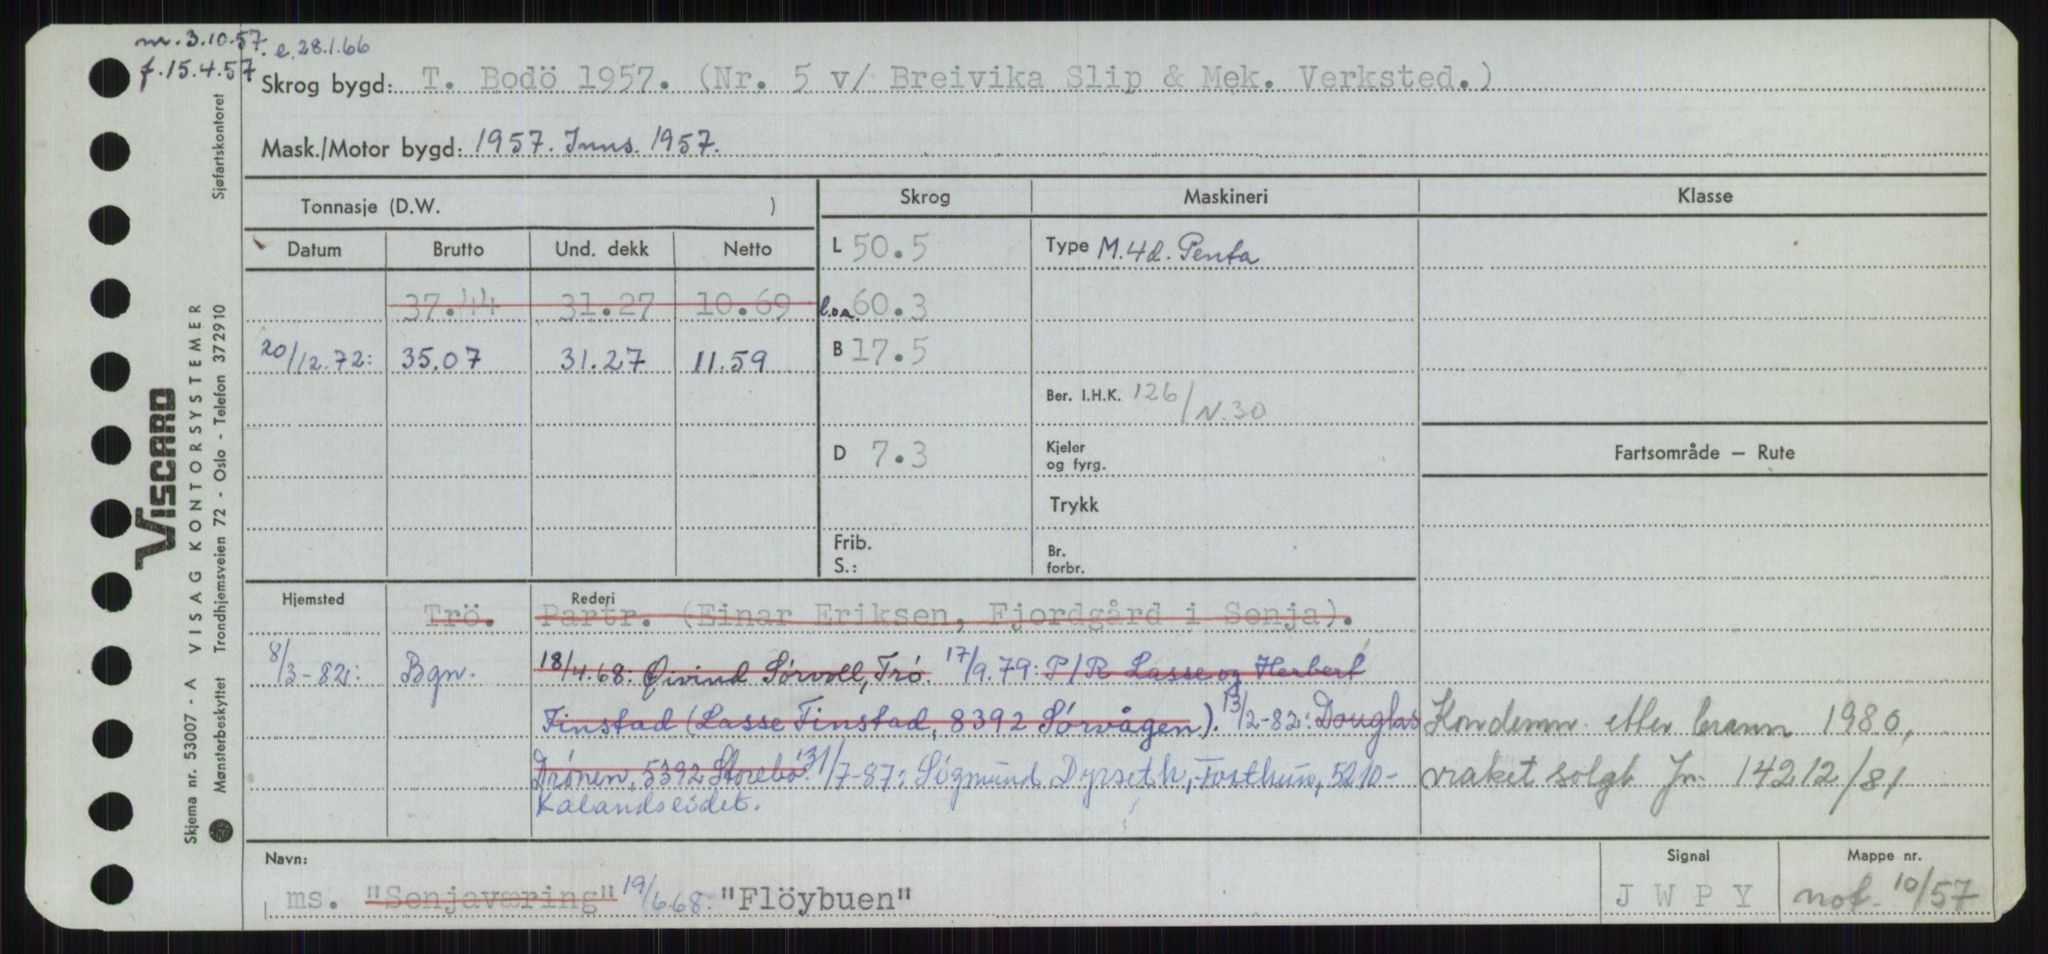 m. 3.10.57. e.28.1.66
f.15.4.57
Skrog bygd: T. Bodö 1957. (Nr. 5 v/ Breivika Slip & Mek. Verksted.)
Mask./Motor bygd: 1957. Inns. 1957.
Tonnasje (D.W. )
Skrog Maskineri Klasse
Datum Brutto Und. dekk Netto L 50.5 Type M.4d. Penta
37.44 31.27 10.69 l.o.a. 60.3
20/12.72: 35.07 31.27 11.59 B 17.5
Ber. I.H.K. 126/N.30
D 7.3 Kjeler
og fyrg.
Fartsområde — Rute
Trykk
Frib.
S.:
Br.
forbr.
Hjemsted Rederi
Trö. Partr. (Einar Eriksen, Fjordgård i Senja).
8/3-82: Bgn. 18/4.68: Øivind Sørvoll, Trö. 17/9.79: P/R Lasse og Herbert
Finstad (Lasse Finstad, 8392 Sörvågen). 13/2-82: Douglas
Drönen, 5392 Storebö. 31/7-87: Sigmund Dyrseth, 5210-
Kalandseidet.
Kondemn. etter brann 1980,
vraket solgt Jn. 14212/81
Navn: Signal Mappe nr.
ms. "Senjaværing" 19/6.68: "Flöybuen" J W P Y not. 10/57
Sjøfartskontoret
VISCARD
VISAG KONTORSYSTEMER
Skjema nr. 53007 - A
Mønsterbeskyttet Trondhjemsveien 72 - Oslo - Telefon 372910